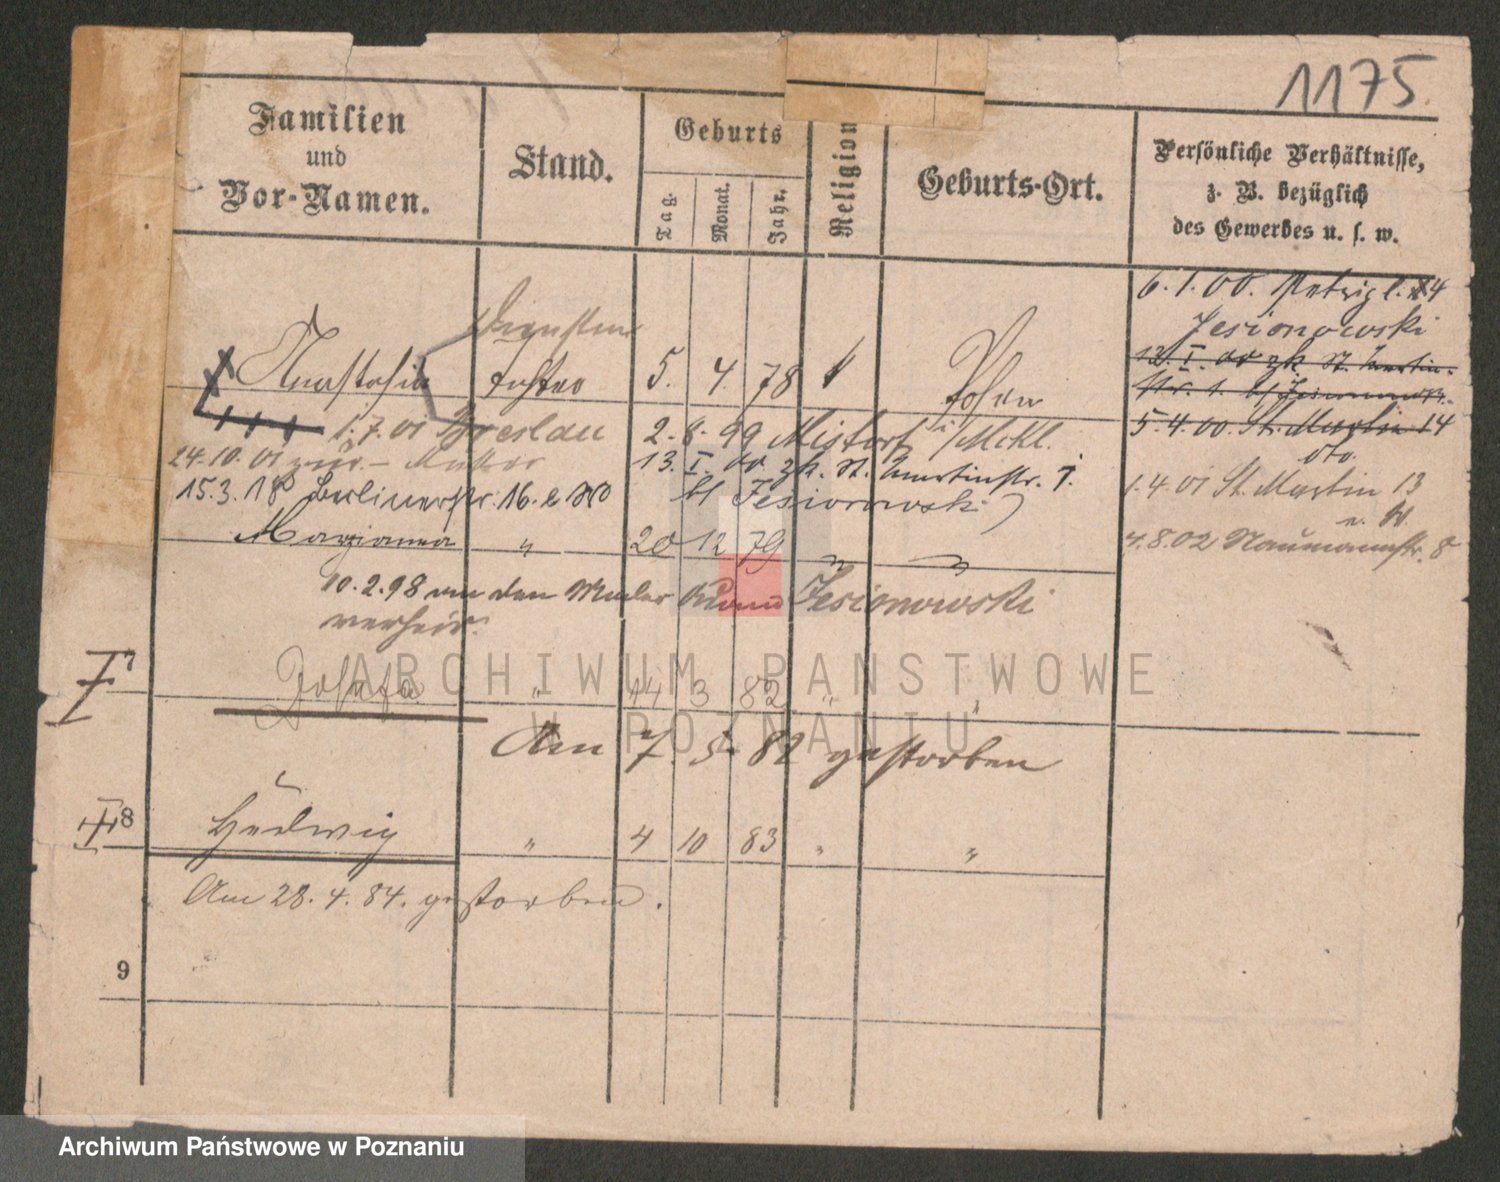 1175
Familien
und
Vor-Namen.
Stand.
Geburts
Tag.
Monat.
Jahr.
Religion
Geburts-Ort.
Persönliche Verhältnisse,
z. B. bezüglich
des Gewerbes u. s. w.
6.1.00.
Jesionowski
Anastasia
tochter
5. 4. 78
Posen
12. I. 00 zk St. Martin-
str. 1.
1.7.01 Breslau
2.8.99 Mistorf i/Mekl.
5.4.00. St. Martin 14
dto.
24.10.01 zur. - Mutter
13. I. 00 zk. St. Martinstr. 1.
1.4.01 St. Martin 13
15.3.18 Berlinerstr. 16.
b/ Jesionowski
Marianna " 20 12 79 " "
4.8.02 Naumannstr. 8
10.2.98 an den Maler Jesionowski
verheir.
7
Josefa " 14 3 82 " "
Am 7. 5. 82 gestorben
8
Hedwig " 4 10 83 " "
Am 28. 4. 84. gestorben.
9
ARCHIWUM PAŃSTWOWE
W POZNANIU
Archiwum Państwowe w Poznaniu